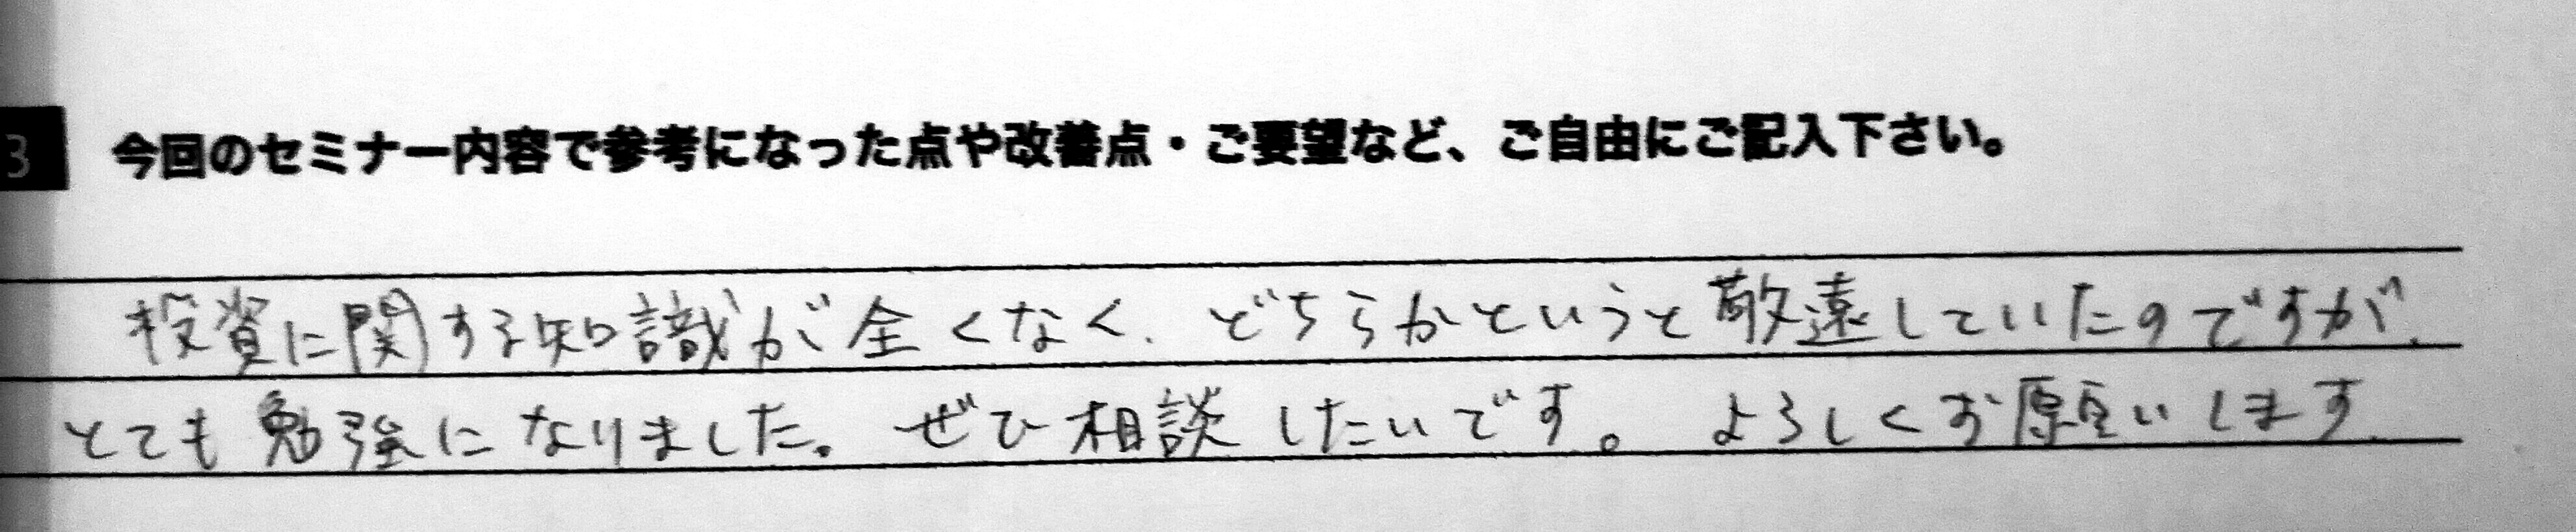 3 今回のセミナー内容で参考になった点や改善点・ご要望など、ご自由にご記入下さい。
投資に関する知識が全くなく、どちらかというと敬遠していたのですが、
とても勉強になりました。ぜひ相談したいです。よろしくお願いします